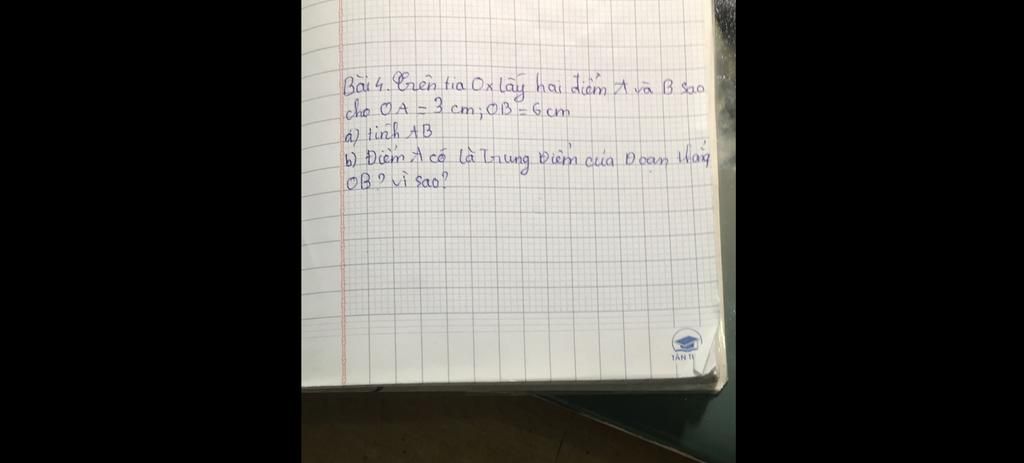 Bài 4. Trên tia Ox lấy hai điểm A và B sao
cho OA = 3 cm; OB = 6 cm
a) tính AB
b) Điểm A có là Trung Điểm của Đoạn thẳng
OB? vì sao?
TÂN TI